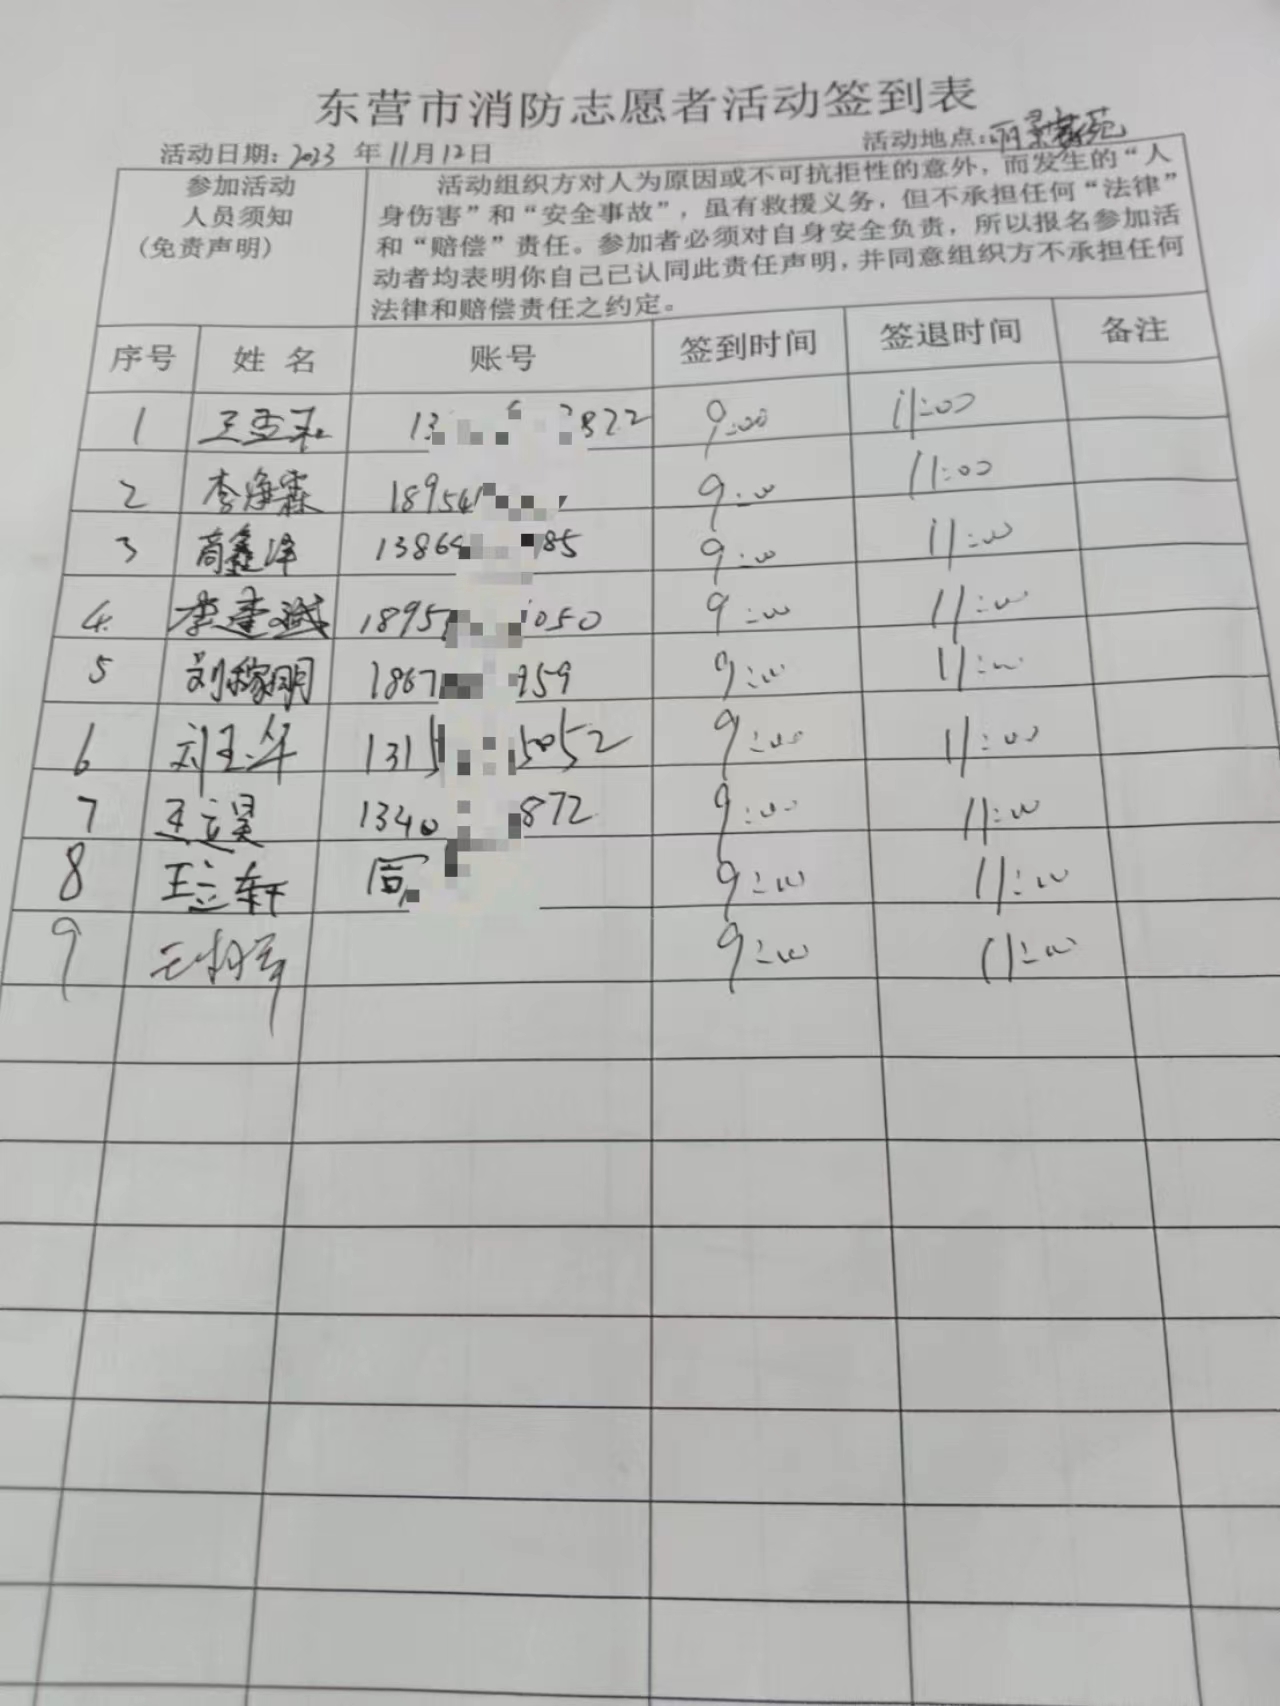 东营市消防志愿者活动签到表
活动日期：2023 年11月12日 活动地点：丽景家苑
参加活动
人员须知
（免责声明）
活动组织方对人为原因或不可抗拒性的意外，而发生的“人
身伤害”和“安全事故”，虽有救援义务，但不承担任何“法律”
和“赔偿”责任。参加者必须对自身安全负责，所以报名参加活
动者均表明你自己已认同此责任声明，并同意组织方不承担任何
法律和赔偿责任之约定。
序号 姓 名 账号 签到时间 签退时间 备注
1 13 822 9:00 11:00
2 李海霖 18954 9:00 11:00
3 高鑫泽 1386 85 9:00 11:00
4. 李建斌 1895 050 9:00 11:00
5 刘稼明 1867 959 9:00 11:00
6 刘玉华 1315 5052 9:00 11:00
7 王立昊 1340 872 9:00 11:00
8 王立轩 同 9:00 11:00
9 9:00 11:00